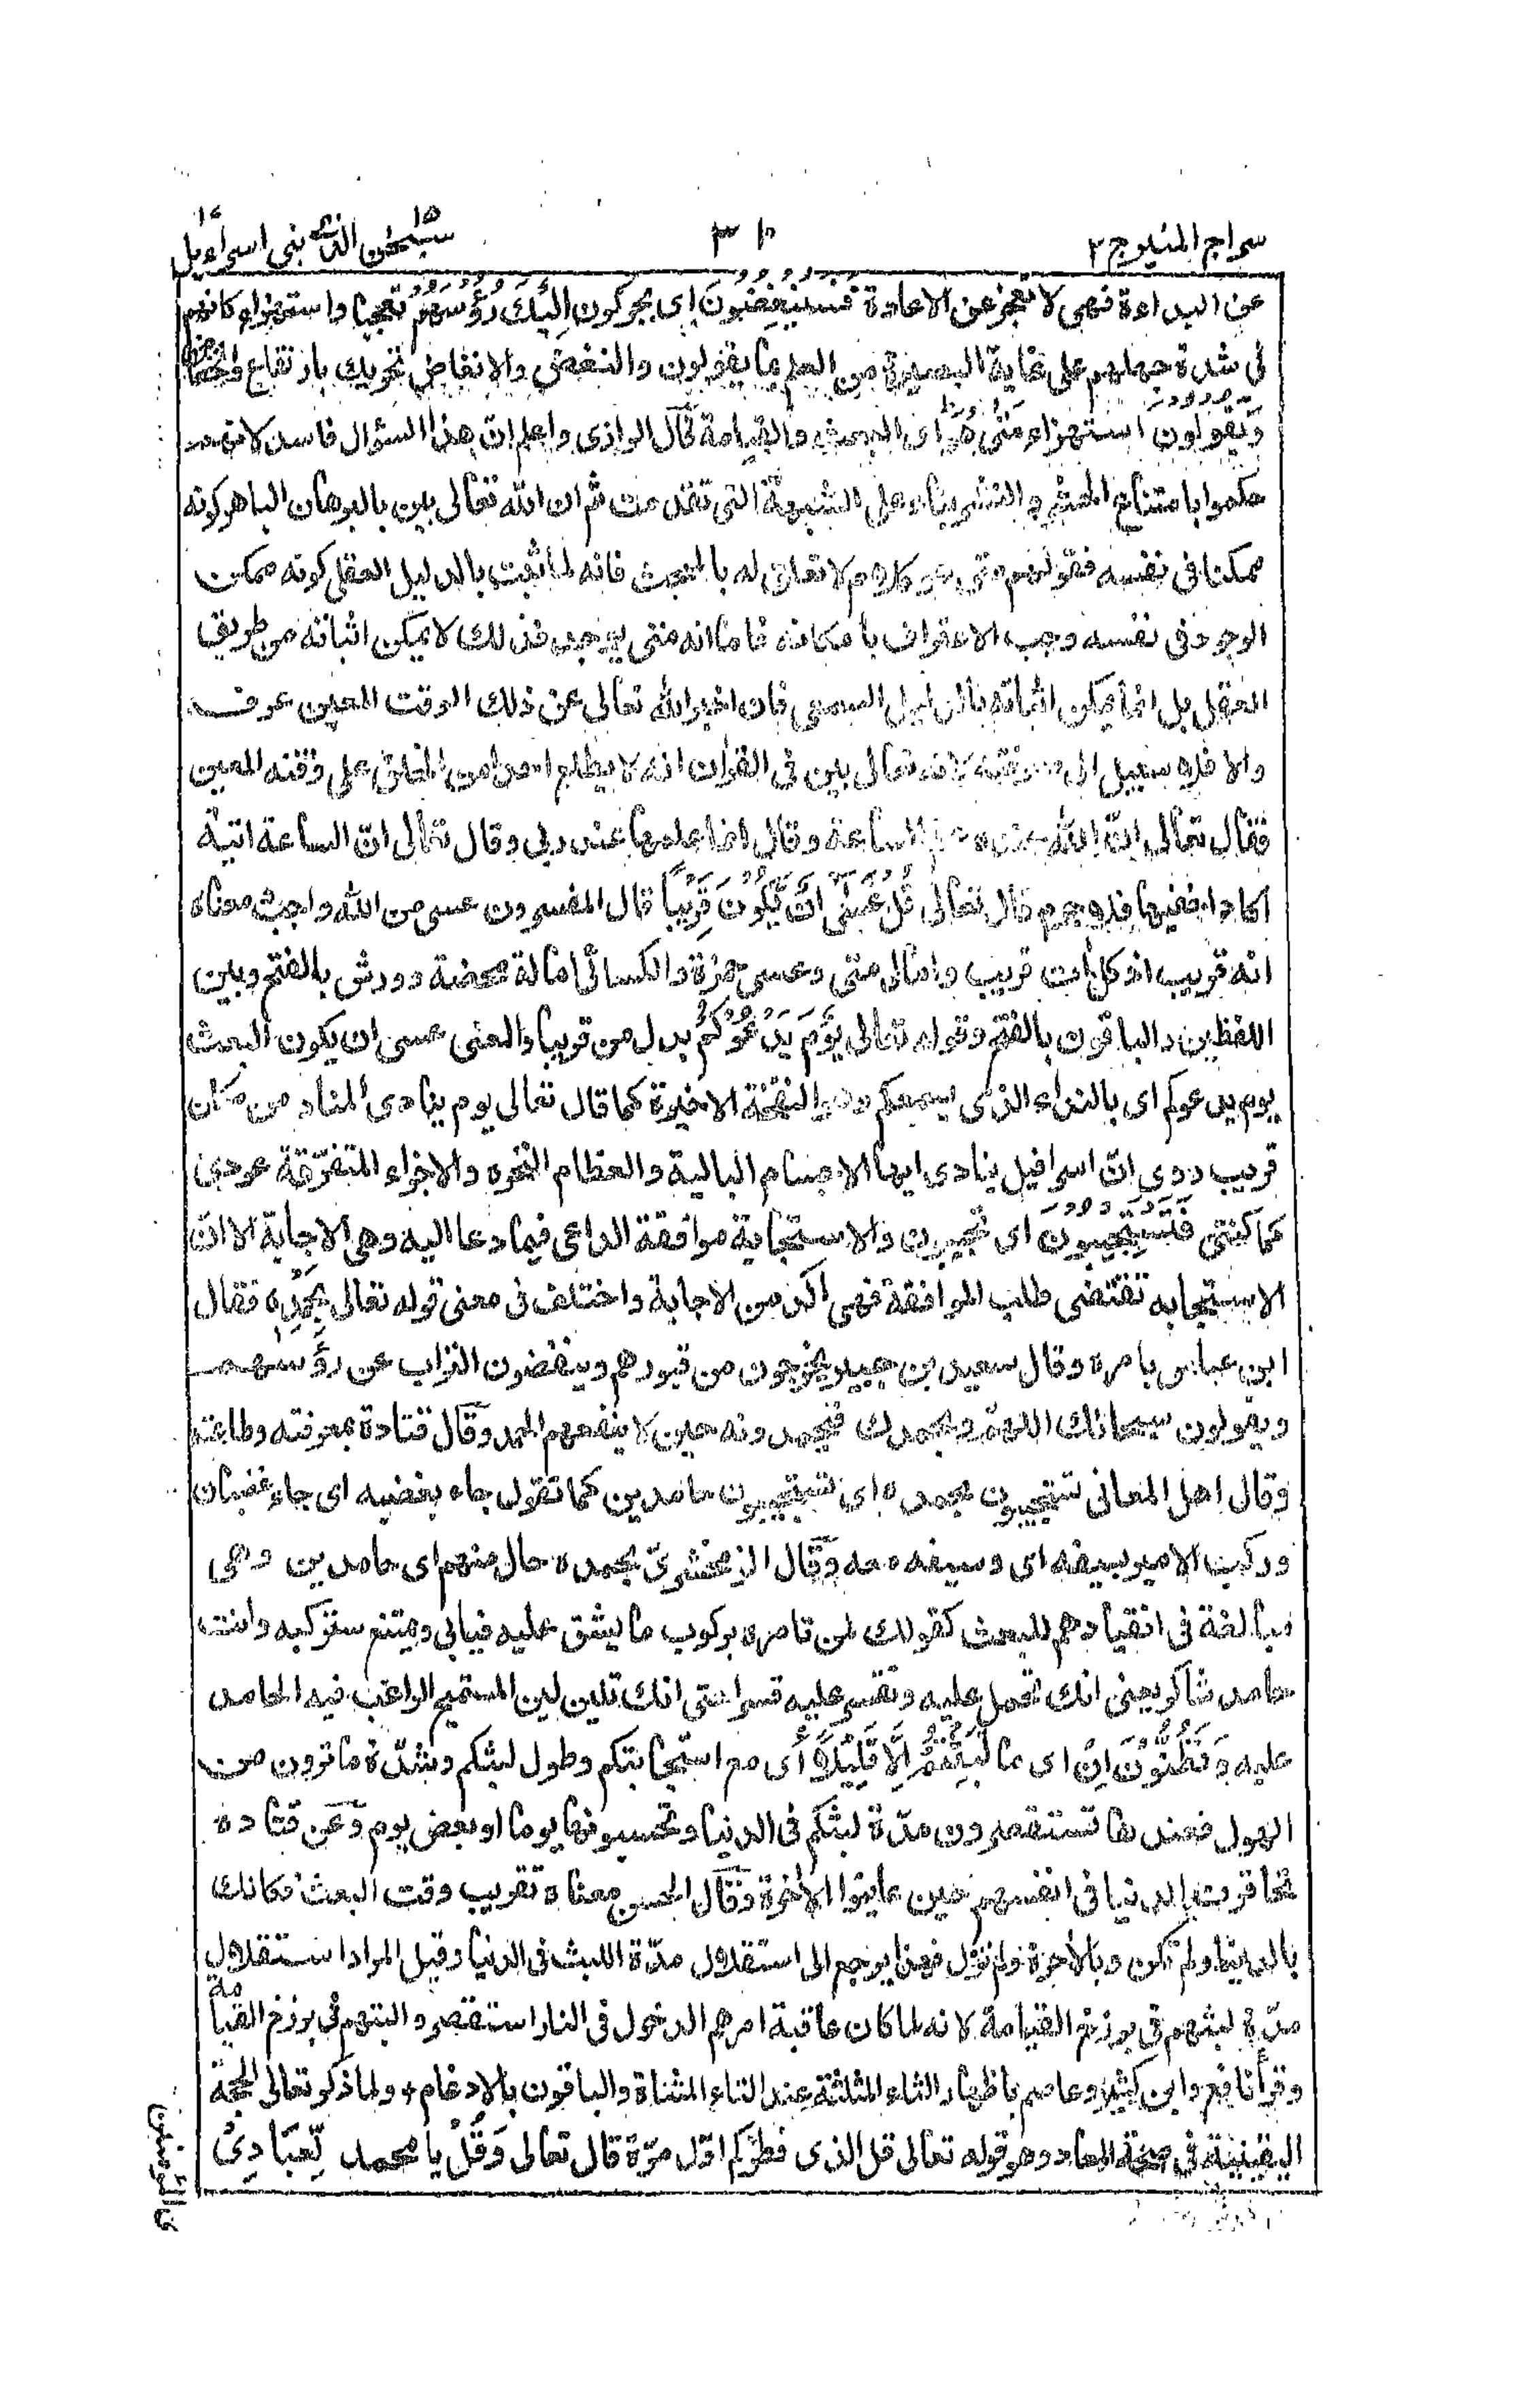 سراج المنير ج ٢
٣١٠
سبحٰن الذى ١٥ بنى اسرآءيل ١٤
عن البداءة فهى لا تعجز عن الاعادة فَسَيُنْغِضُوْنَ اى يحركون اِلَيْكَ رُؤُسَهُمْ تعجبا واستهزاء كانهم
فى شدة جهلهم على غاية البصيرة من العلم بما يقولون والنغض والانغاض تحريك بارتفاع وانخفاض
وَيَقُوْلُوْنَ استهزاء مَتٰى هُوَ اى البعث والقيامة قال الرازى واعلم انّ هذا السؤال فاسد لانهم
حكموا بامتناع الحشر والنشر بناء على الشبهة التى تقدمت ثم ان الله تعالى بين بالبرهان الباهر كونه
ممكنا فى نفسه فقولهم متى هو كلام لا تعلق له بالبحث فانه لما ثبت بالدليل العقلى كونه ممكن
الوجود فى نفسه وجب الاعتراف بامكانه فاما انه متى يوجد فذلك لا يمكن اثباته من طريق
العقل بل انما يمكن اثباته بالدليل السمعى فان اخبر الله تعالى عن ذلك الوقت المعين عرف
والا فلا سبيل الى معرفته لانه تعالى بين فى القرآن انه لا يطلع احدا من الخلق على وقته المعين
فقال تعالى انّ الله عنده علم الساعة وقال انما علمها عند ربى وقال تعالى انّ الساعة اتية
اكاد اخفيها فلا جرم قال تعالى قُلْ عَسٰٓى اَنْ يَّكُوْنَ قَرِيْبًا قال المفسرون عسى من الله واجب معناه
انه قريب اذ كل آت قريب وامالى متى وعسى حمزة والكسائى امالة محضة وورش بالفتح وبين
اللفظين والباقون بالفتح وقوله تعالى يَوْمَ يَدْعُوْكُمْ بدل من قريبا والمعنى عسى ان يكون البعث
يوم يدعوكم اى بالنداء الذى يسمعكم وهو النفخة الاخيرة كما قال تعالى يوم ينادى المناد من مكان
قريب روى انّ اسرافيل ينادى ايها الاجسام البالية والعظام النخرة والاجزاء المتفرّقة عودى
كما كنتى فَتَسْتَجِيْبُوْنَ اى تجيبون والاستجابة موافقة الداعى فيما دعا اليه وهى الاجابة الا انّ
الاستجابه تقتضى طلب الموافقة فهى اكد من الاجابة واختلف فى معنى قوله تعالى بِحَمْدِهٖ فقال
ابن عباس بامره وقال سعيد بن جبير يخرجون من قبورهم وينفضون التراب عن رؤسهم
ويقولون سبحانك اللهمّ وبحمدك فيحمدونه حين لا ينفعهم الحمد وقال قتادة بمعرفته وطاعته
وقال اهل المعانى تستجيبون بحمده اى تستجيبون حامدين كما تقول جاء بغضبه اى جاء غضبان
وركب الامير بسيفه اى وسيفه معه وقال الزمخشرىّ بحمده حال منهم اى حامدين وهى
مبالغة فى انقيادهم للبعث كقولك لمن تامره بركوب ما يشق عليه فيابى ويمتنع ستركبه وانت
حامد شاكر يعنى انك تحمل عليه وتقسر عليه قسرا حتى انك تلين لين المسمح الراغب فيه الحامد
عليه وَتَظُنُّوْنَ اِنْ اى ما لَّبِثْتُمْ اِلَّا قَلِيْلًا اى مع استجابتكم وطول لبثكم وشدّة ما ترون من
الهول فعندها تستقصرون مدّة لبثكم فى الدنيا وتحسبونها يوما او بعض يوم وعن قتاده
تحاقرت الدنيا فى انفسهم حين عاينوا الآخرة وقال الحسن معناه تقريب وقت البعث فكانك
بالدنيا ولم تكن وبالآخرة ولم تزل فهذا يرجع الى استقلال مدّة اللبث فى الدنيا وقيل المراد استقلال
مدّة لبثهم فى برزخ القيامة لانه لما كان عاقبة امرهم الدخول فى النار استقصروا لبثهم فى برزخ القيامة
وقرأ نافع وابن كثير وعاصم باظهار الثاء المثلثة عند التاء المثناة والباقون بالادغام، ولما ذكر تعالى الحجة
اليقينية فى صحة المعاد وهو قوله تعالى قل الذى فطركم اوّل مرّة قال تعالى وَقُلْ يا محمد لِّعِبَادِىْ